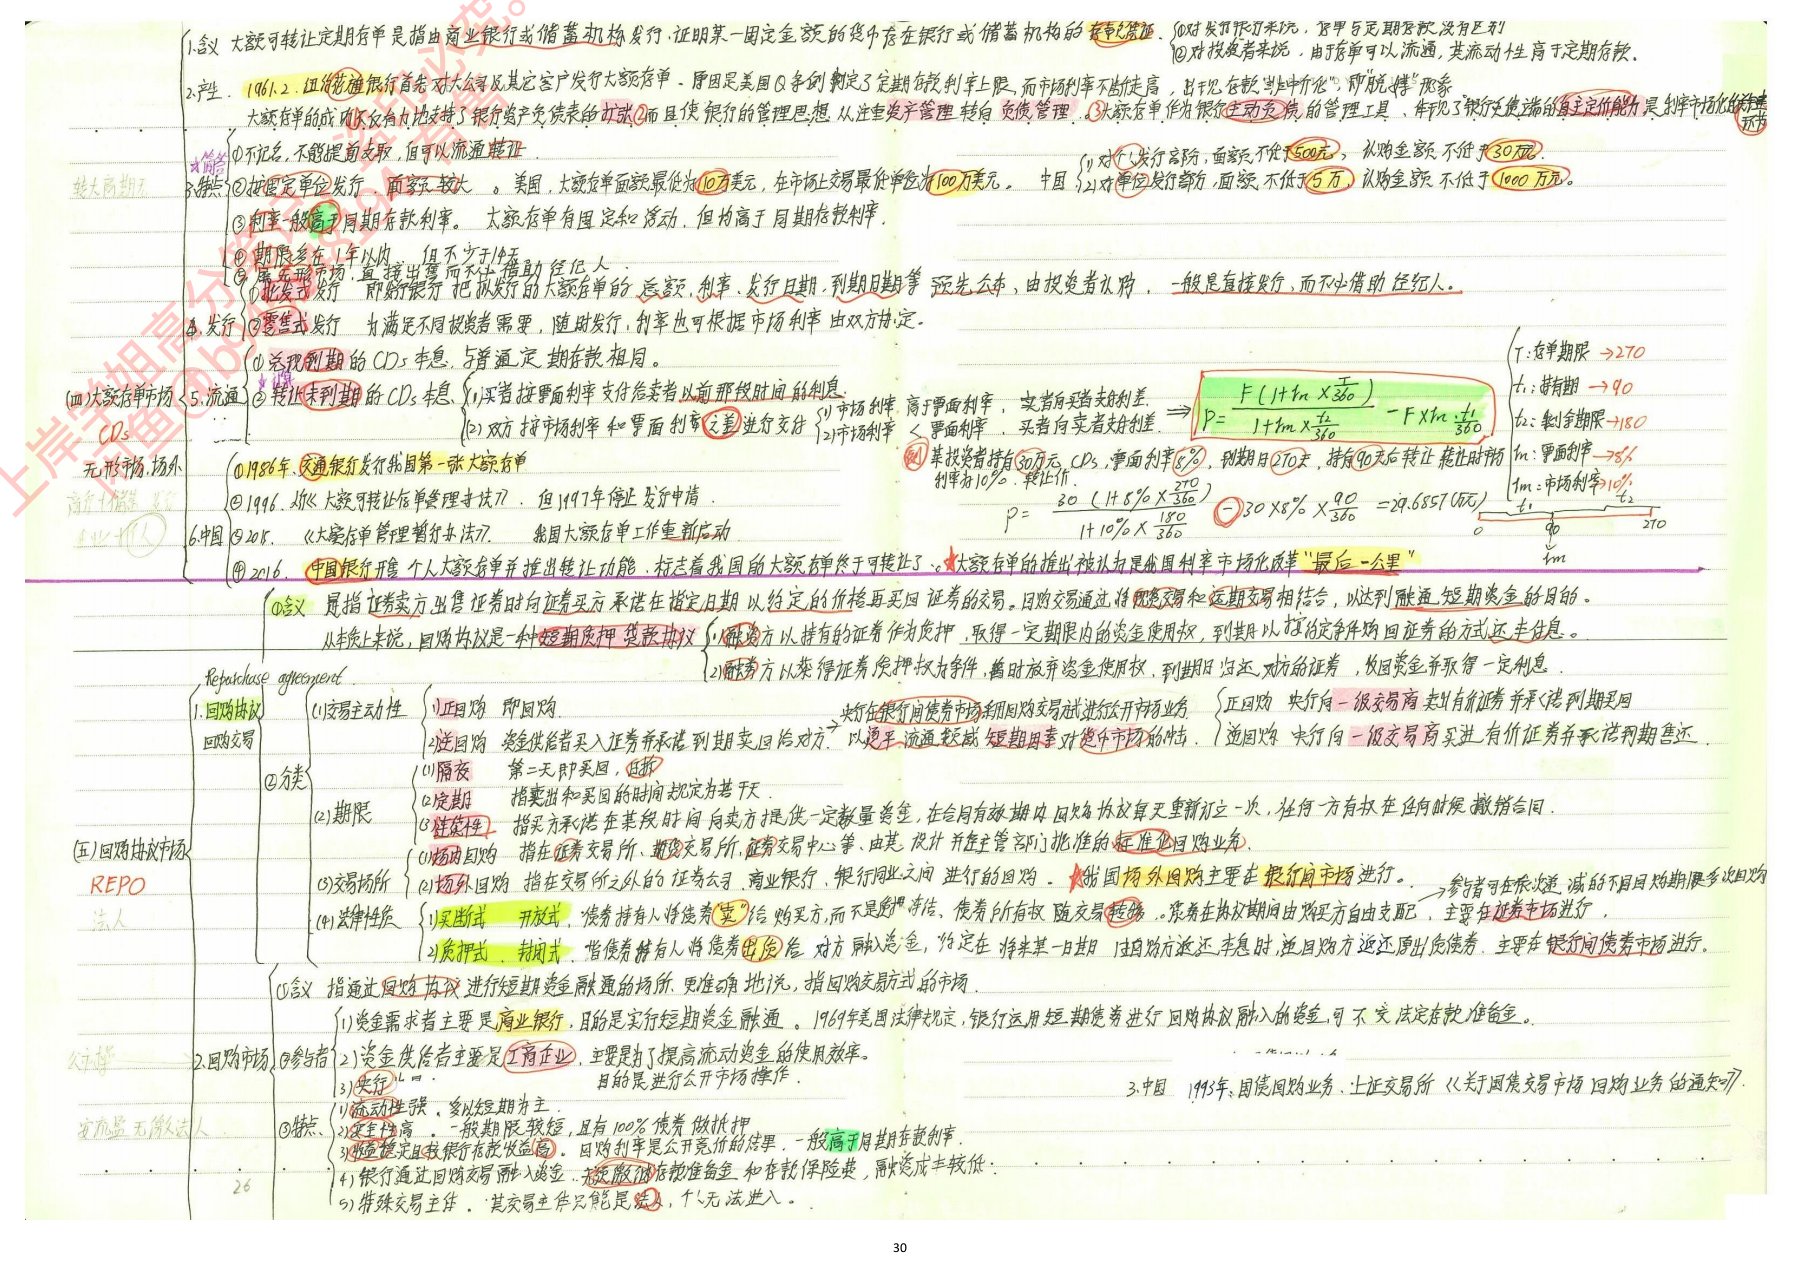 1.含义 大额可转让定期存单是指由商业银行或储蓄机构发行,证明某一固定金额的货币存在银行或储蓄机构的存款凭证.
①对发行银行来说,存单与定期存款没有区别
②对投资者来说,由于存单可以流通,其流动性高于定期存款.
2.产生. 1961.2.纽约花旗银行首先对大公司及其它客户发行大额存单.原因是美国Q条例制定了定期存款利率上限,而市场利率不断走高,出现存款"非中介化",即"脱媒"现象
大额存单的成功①不仅有力地支持了银行资产负债表的扩张②而且使银行的管理思想从注重资产管理转向负债管理.③大额存单作为银行主动负债的管理工具,体现了银行负债端的自主定价能力是利率市场化的重要环节
☆简答
3.特点 ①不记名,不能提前支取,但可以流通转让
②按固定单位发行 面额较大。美国,大额存单面额最低为10万美元,在市场上交易最低单位为100万美元。
中国 (1)对个人发行部分,面额不低于500元, 认购金额不低于30万元.
(2)对单位发行部分,面额不低于5万, 认购金额不低于1000万元。
③利率一般高于同期存款利率。 大额存单有固定和浮动,但均高于同期存款利率.
④期限多在1年以内 但不少于14天
⑤属无形市场,直接出售而不必借助经纪人.
4.发行 ①批发式发行 即发行银行把拟发行的大额存单的总额、利率、发行日期、到期日期等预先公布,由投资者认购. 一般是直接发行,而不必借助经纪人。
②零售式发行 为满足不同投资者需要,随时发行,利率也可根据市场利率由双方协定。
(四)大额存单市场
CDs
无形市场.场外
5.流通 ①兑现到期的CDs本息,与普通定期存款相同。
②转让未到期的CDs本息 (1)买者按票面利率支付给卖者以前那段时间的利息
(2)双方按市场利率和票面利率之差进行支付
(1)市场利率高于票面利率. 卖者向买者支付利差.
(2)市场利率<票面利率. 买者向卖者支付利差.
⇒ P= F(1+rn×T/360) / (1+rm×t2/360) − F×rn·t1/360
T:存单期限→270
t1:持有期→90
t2:剩余期限→180
rn:票面利率→8%
rm:市场利率→10%
例 某投资者持有30万元CDs,票面利率8%,到期日270天,持有90天后转让 转让时市场利率为10%.转让价
P= 30(1+8%×270/360) / (1+10%×180/360) − 30×8%×90/360 =29.6857(万元)
t1 t2
0 90 270
rm
6.中国 ①1986年,交通银行发行我国第一张大额存单
②1996.《大额可转让存单管理办法》. 但1997年停止发行申请.
③2015.《大额存单管理暂行办法》. 我国大额存单工作重新启动
④2016. 中国银行开售个人大额存单并推出转让功能,标志着我国的大额存单终于可转让了.★大额存单的推出被认为是我国利率市场化改革"最后一公里"
①含义 是指证券卖方出售证券时向证券买方承诺在指定日期以约定的价格再买回证券的交易。回购交易通过将现货交易和远期交易相结合,以达到融通短期资金的目的。
从本质上来说,回购协议是一种短期质押贷款协议 (1)融资方以持有的证券作为质押,取得一定期限内的资金使用权,到期以按约定条件购回证券的方式还本付息。
(2)融券方以获得证券质押权为条件,暂时放弃资金使用权,到期日归还对方的证券,收回资金并取得一定利息.
Repurchase agreement.
1.回购协议
回购交易
②分类
(1)交易主动性 (1)正回购 即回购
(2)逆回购 资金供给者买入证券并承诺到期卖回给对方.
→央行在银行间债券市场利用回购交易方式进行公开市场业务
以熨平流通领域短期因素对货币市场的冲击.
正回购 央行向一级交易商卖出有价证券并承诺到期买回
逆回购 央行向一级交易商买进有价证券并承诺到期售还.
(2)期限 (1)隔夜 第二天即买回,日拆
(2)定期 指卖出和买回的时间规定为若干天.
(3)连续性 指买方承诺在某段时间向卖方提供一定数量资金,在合同有效期内回购协议每天重新订立一次,任何一方有权在任何时候撤销合同.
(五)回购协议市场
REPO
法人
(3)交易场所 (1)场内回购 指在证券交易所、期货交易所、证券交易中心等、由其设计并经主管部门批准的标准化回购业务.
(2)场外回购 指在交易所之外的证券公司、商业银行、银行同业之间进行的回购.★我国场外回购主要在银行间市场进行。
→参与者可在依次递减的不同回购期限多次回购
(4)法律性质 (1)买断式 开放式.债券持有人将债券"卖"给购买方,而不是质押冻结、债券所有权随交易转移.债券在协议期间由购买方自由支配、主要在证券市场进行.
(2)质押式 封闭式.指债券持有人将债券出质给对方融入资金,约定在将来某一日期由回购方返还本息时,逆回购方返还原出质债券.主要在银行间债券市场进行。
2.回购市场
①含义 指通过回购协议进行短期资金融通的场所.更准确地说,指回购交易方式的市场.
②参与者 (1)资金需求者主要是商业银行,目的是实行短期资金融通。1969年美国法律规定,银行运用短期债券进行回购协议融入的资金,可不交法定存款准备金。
2)资金供给者主要是工商企业,主要是为了提高流动资金的使用效率。
3)央行 目的是进行公开市场操作.
3.中国 1993年,国债回购业务.上证交易所《关于国债交易市场回购业务的通知》.
③特点. 1)流动性强.多以短期为主.
2)安全性高.一般期限较短,且有100%债券做抵押
3)收益稳定且较银行存款收益高.回购利率是公开竞价的结果.一般高于同期存款利率.
4)银行通过回购交易融入资金,无须缴纳存款准备金和存款保险费,融资成本较低.
5)特殊交易主体.其交易主体只能是法人,个人无法进入。
26
30